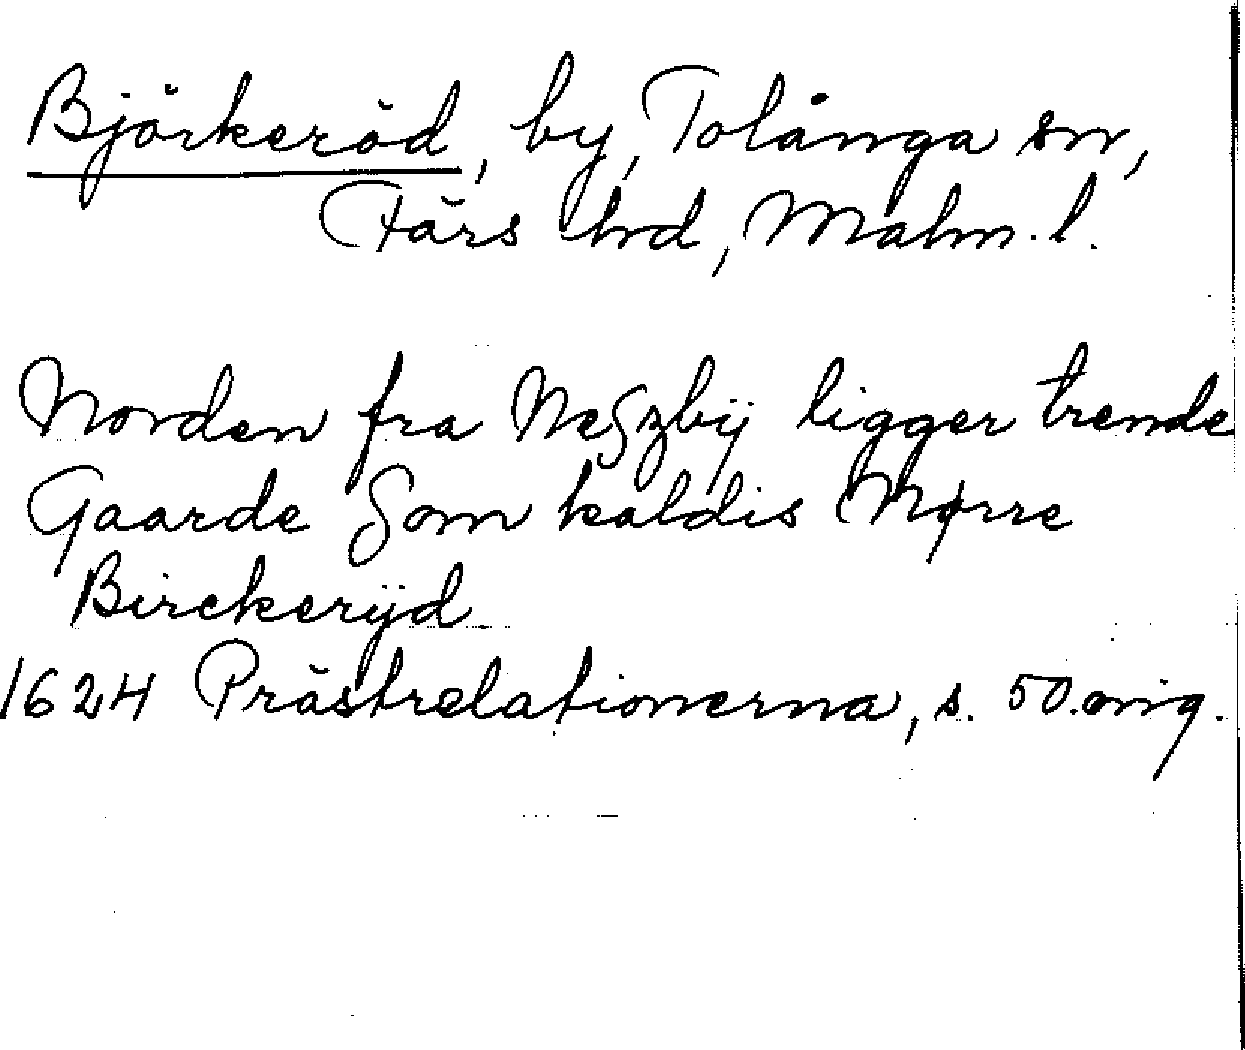 Björkeröd, by, Tolånga sn,
Färs hrd, Malm. l.
Norden fra Neszbÿ ligger trende
Gaarde Som kaldis Nørre
Birckerÿd
1624 Prästrelationerna, s. 50. orig.